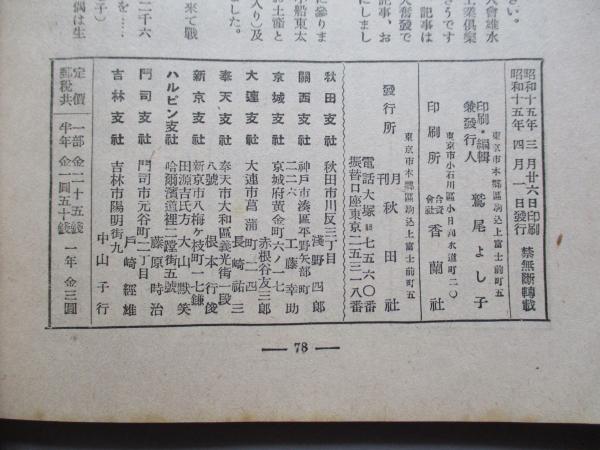 さい。
大會雄水
きうです
工業倶樂
記事は
大奮發で
記事、お
にしまし
に參りま
小船東太
お土產と
入り）及
ました。
來て戰
を‥‥
二千六
子）
偶は生
昭和十五年三月廿六日印刷
昭和十五年四月一日發行
禁無斷轉載
東京市本鄕區駒込上富士前町五
印刷・編輯兼發行人 鷲尾よし子
東京市小石川區小日向水道町二〇
印刷所 合資會社 香蘭社
東京市本鄕區駒込上富士前町五
發行所 月刊 秋田社
電話大塚七五六〇番
振替口座東京二五三一八番
秋田支社 秋田市川反三丁目
淺野四郎
關西支社 神戶市湊區平野矢部町二二六
工藤幸助
京城支社 京城府黃金町六ノ七
赤根谷友三郎
大連支社 大連市菖蒲町二四
長崎祐三
奉天支社 奉天市大和區義光街一段八號
根本行俊
新京支社 新京市八梅ヶ枝町一七鎌田源吉氏方
大山默笑
ハルビン支社 哈爾濱道裡二蹚街五號
藤原時治
門司支社 門司市元谷町二丁目
戶崎經雄
吉林支社 吉林市陽明街九
中山子行
定價 一部 金二十五錢 一年 金三圓
郵稅共 半年 金一圓五十錢
— 78 —